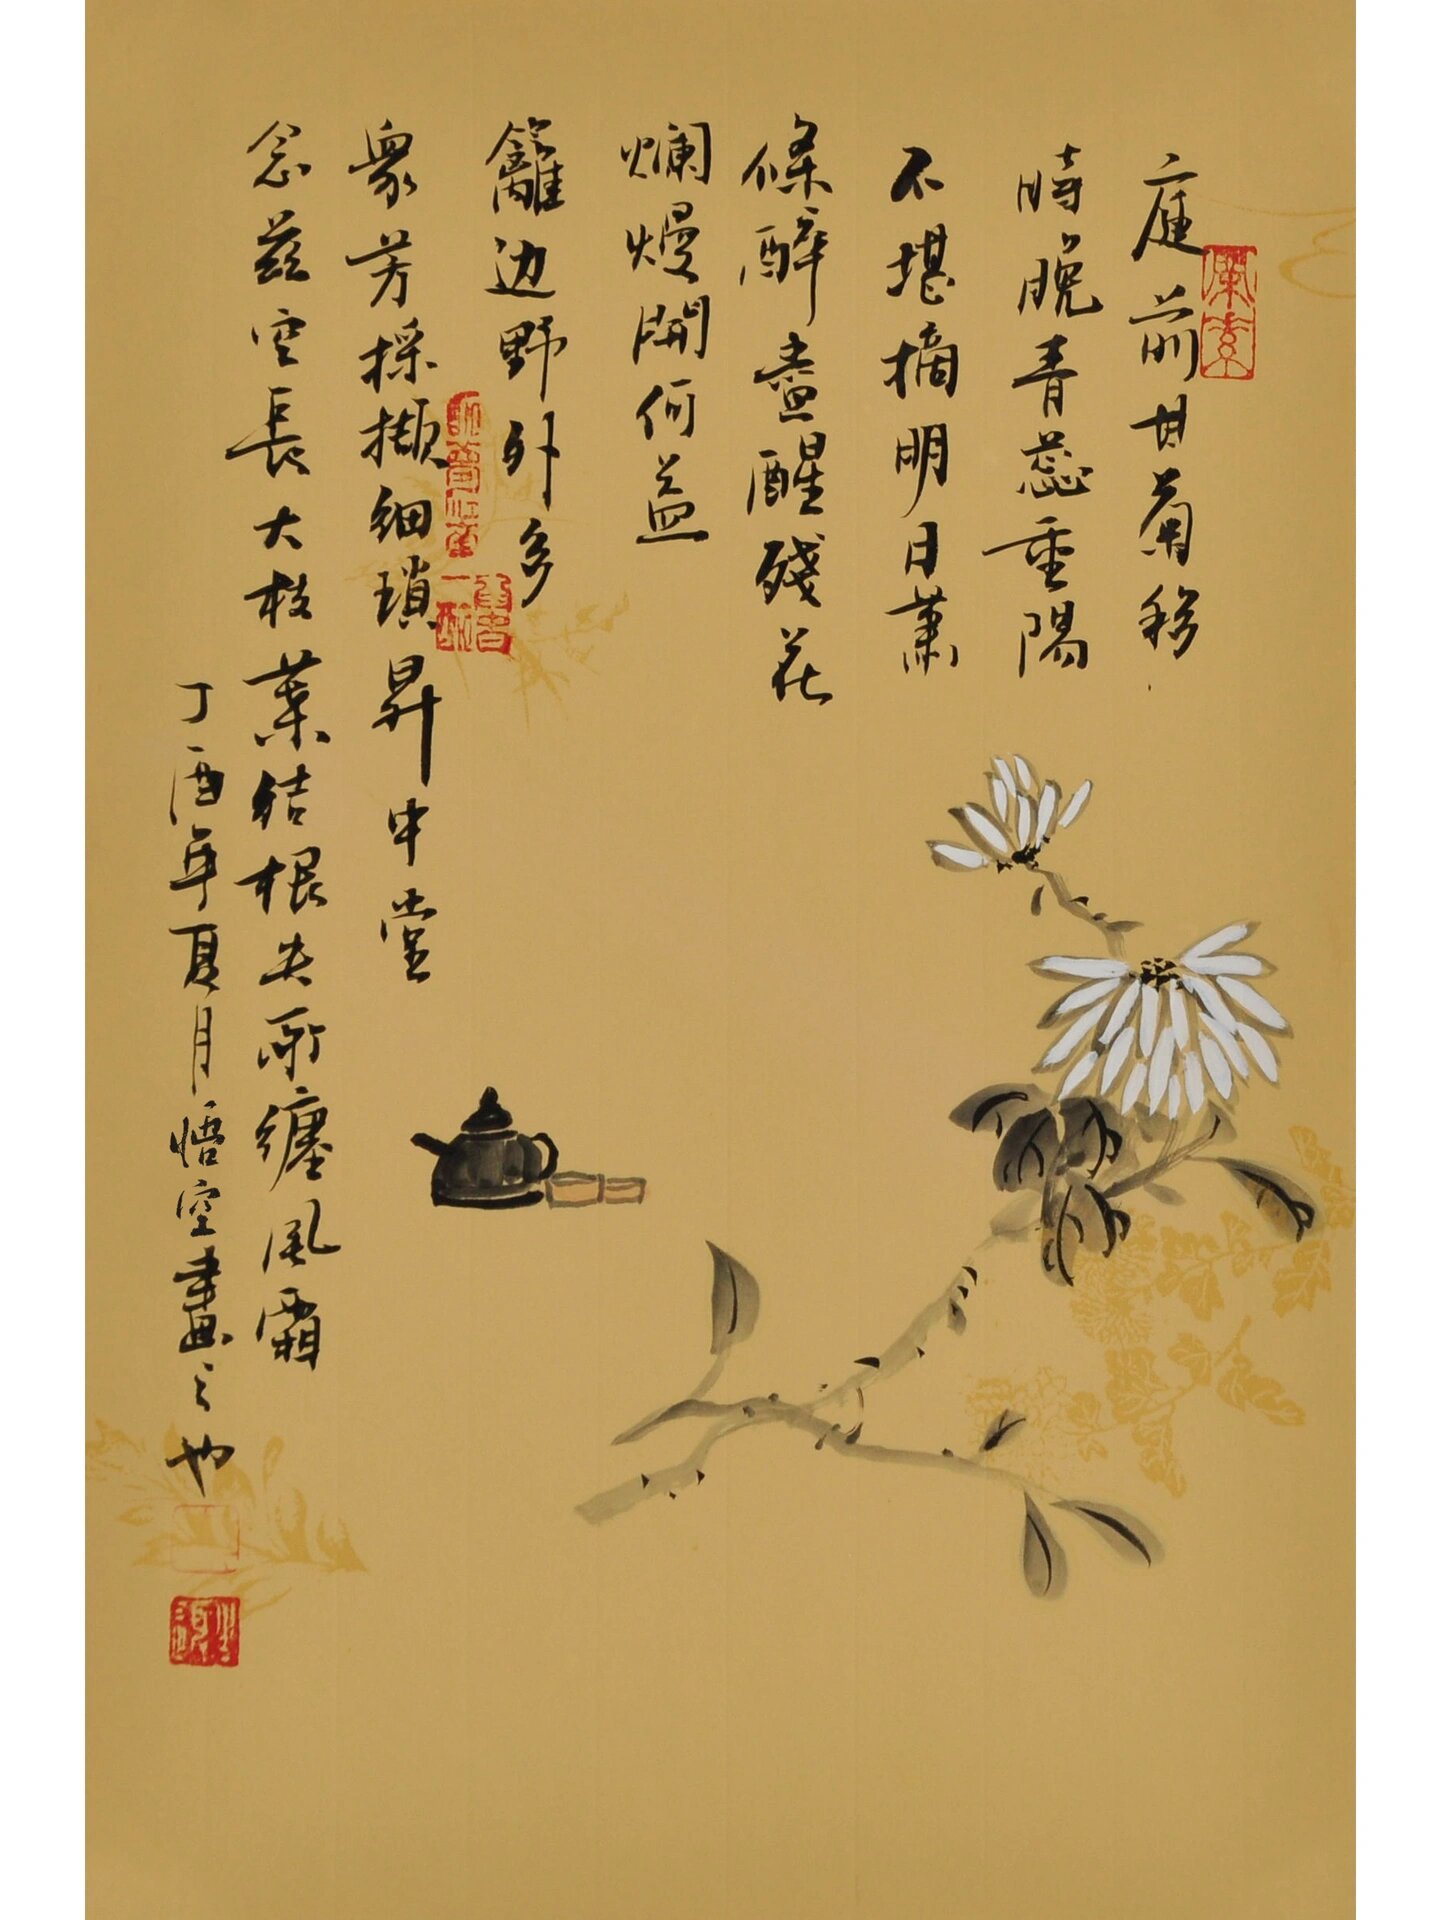 庭前甘菊移
時晚青蕊重陽
不堪摘明日蕭
條醉盡醒殘花
爛熳開何益
籬边野外多
衆芳採擷細瑣昇中堂
念兹空長大枝葉結根失所纏風霜
丁酉年夏月悟空畫之也